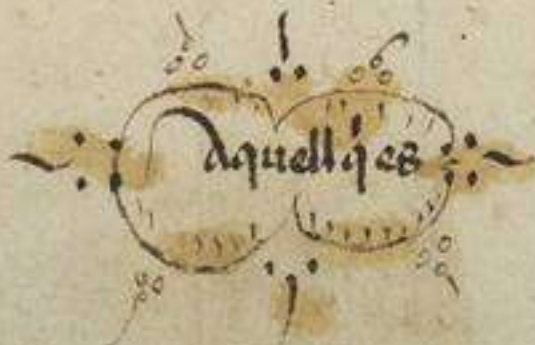 Aquell q̄ es